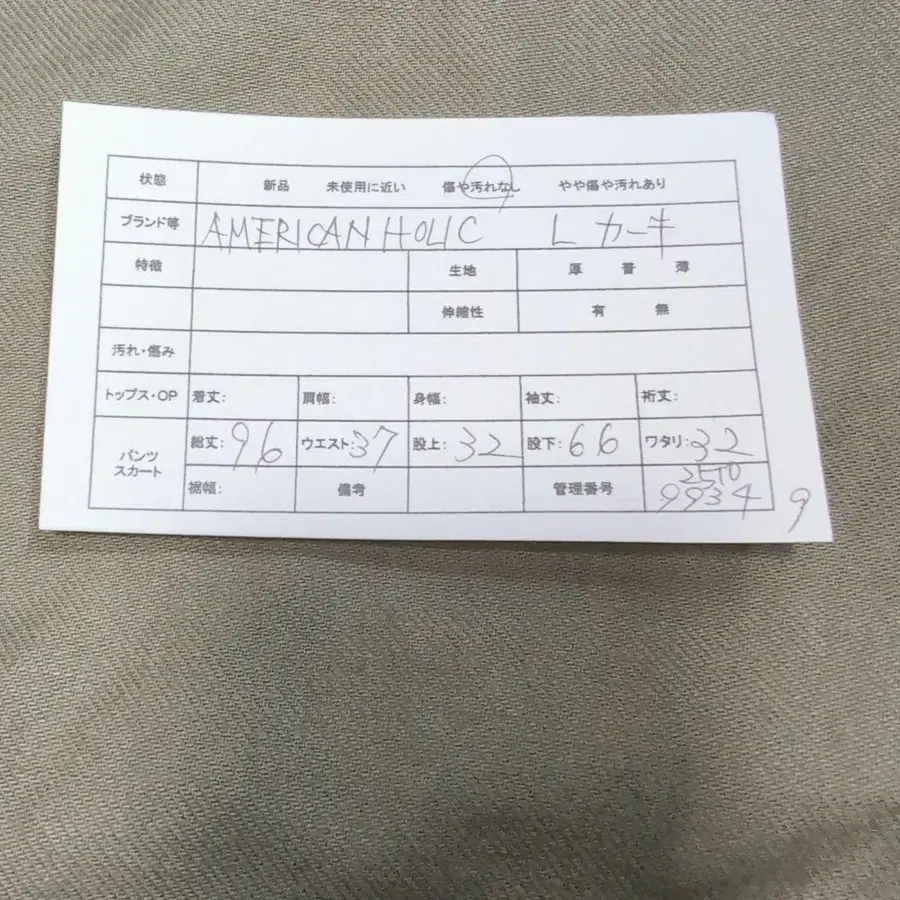 状態 新品 未使用に近い 傷や汚れなし やや傷や汚れあり
ブランド等 AMERICAN HOLIC L カーキ
特徴 生地 厚 普 薄
伸縮性 有 無
汚れ・傷み
トップス・OP 着丈: 肩幅: 身幅: 袖丈: 裄丈:
パンツ スカート 総丈: 96 ウエスト: 37 股上: 32 股下: 66 ワタリ: 32
裾幅: 備考 管理番号 2510
99349